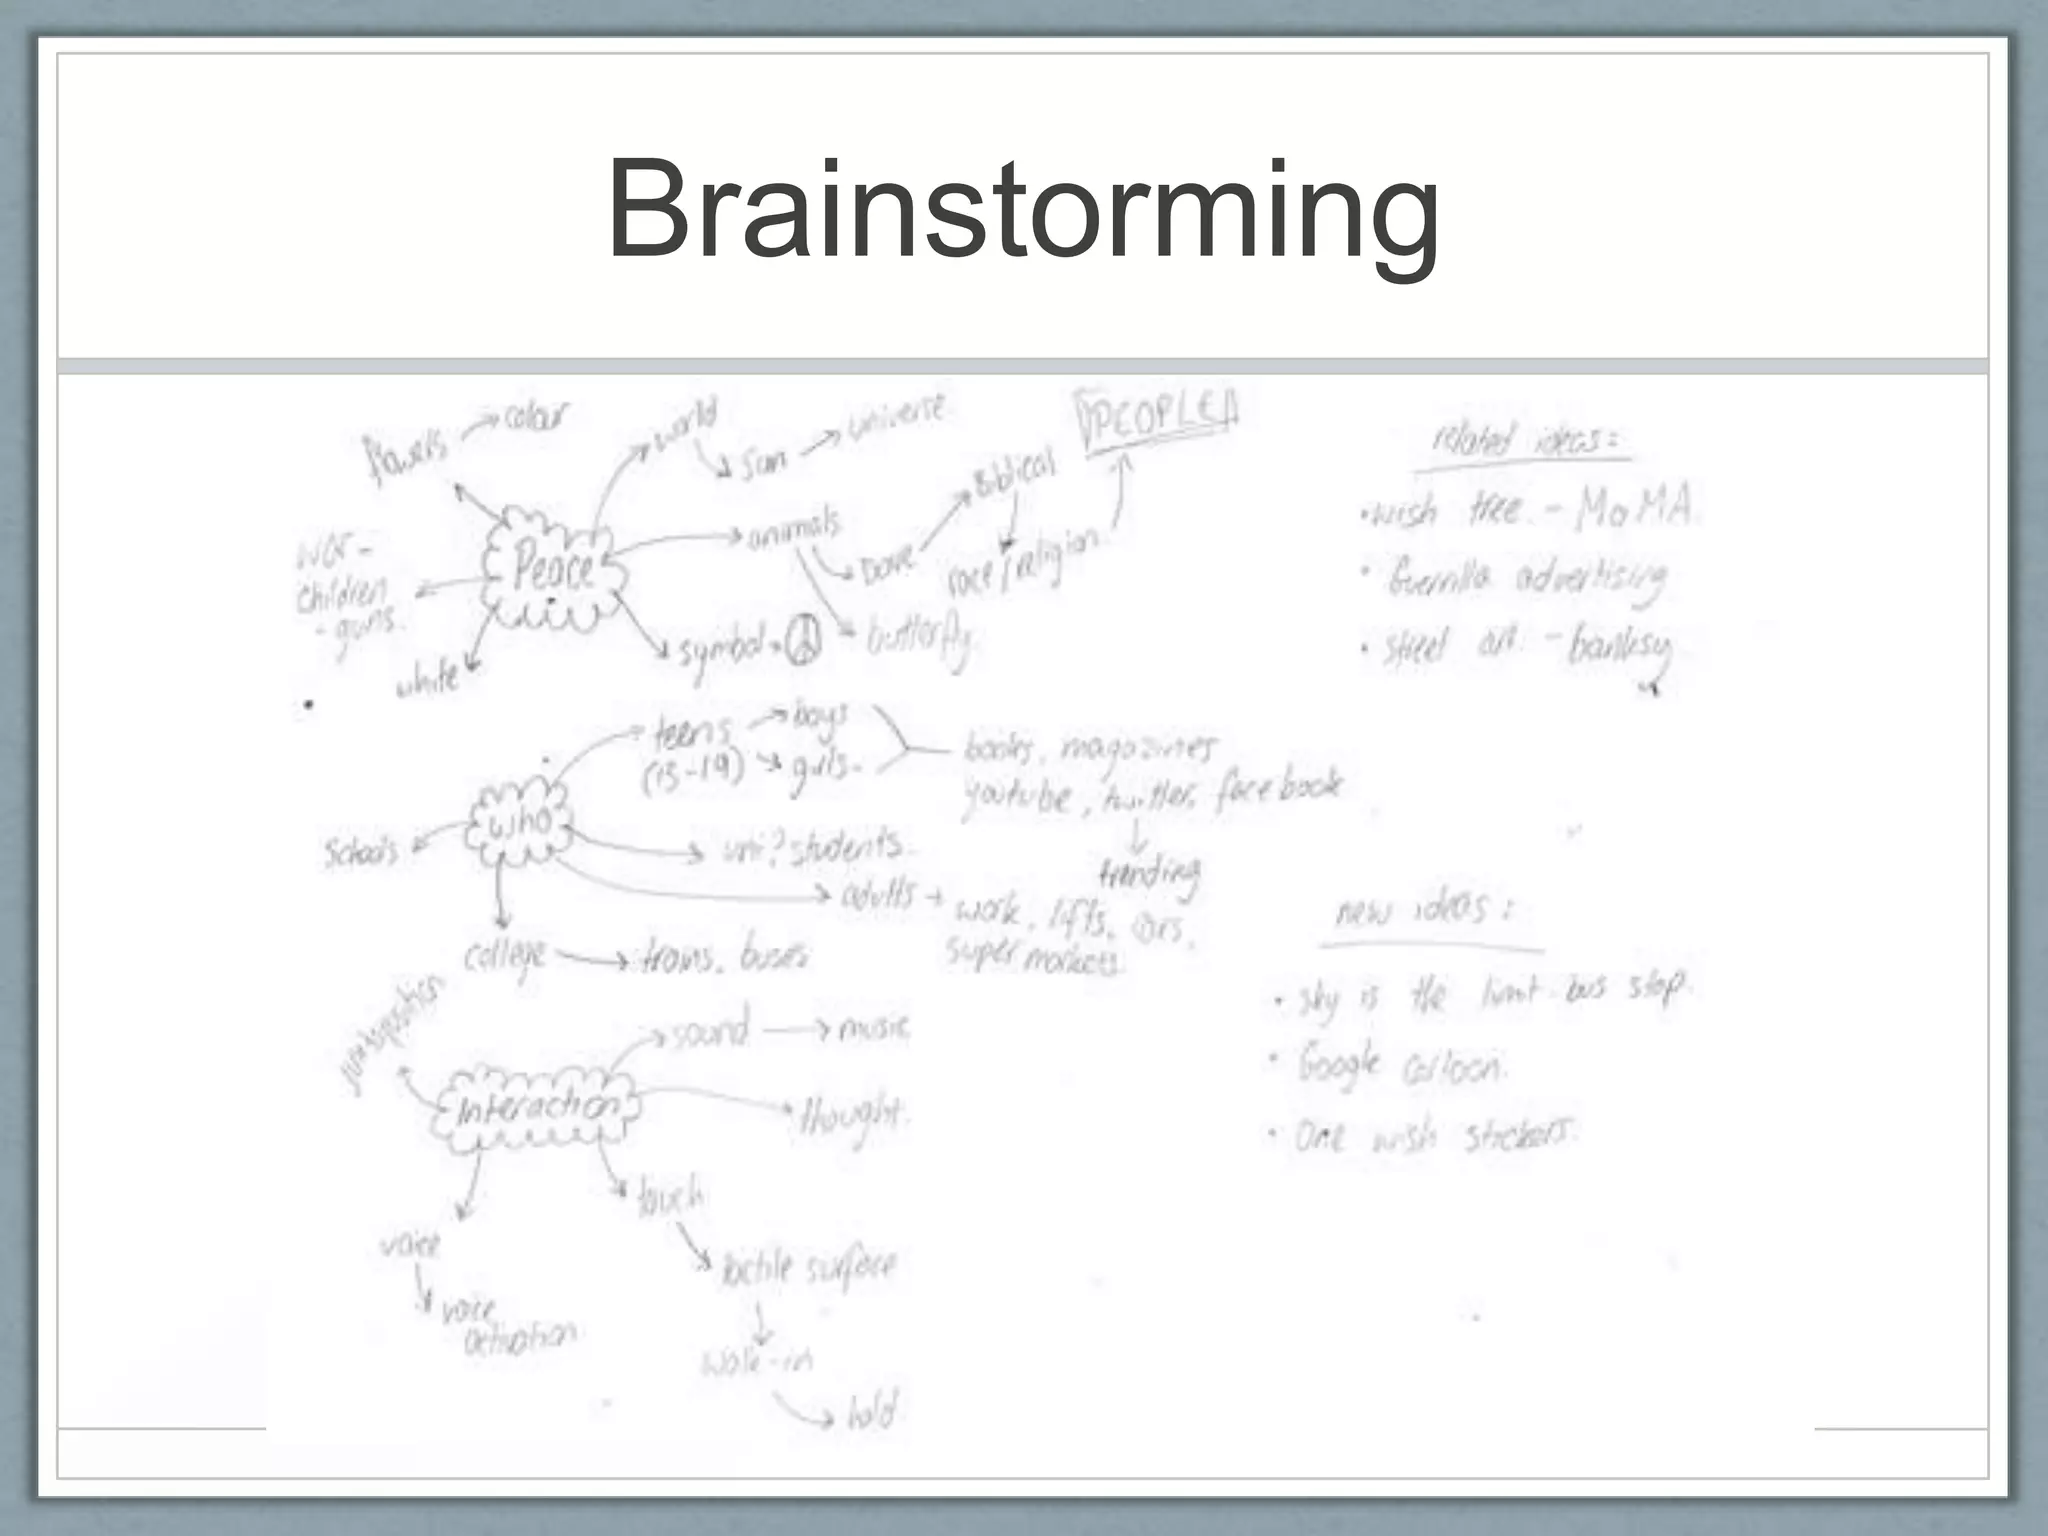 Brainstorming
flowers
colour
world
sun
universe
PEOPLE
Biblical
animals
Dove
race/religion
butterfly
symbol
Peace
war -
children
- guns.
white
related ideas:
• wish tree - MoMA
• Guerrilla advertising
• street art - banksy
who
teens
(15-19)
boys
girls
books, magazines
youtube, twitter, facebook
trending
uni? students.
adults
work, lifts, cars,
supermarkets
Schools
college
trains, buses
new ideas:
• sky is the limit - bus stop.
• Google cartoon.
• One wish stickers.
Interaction
juxtaposition
sound
music
thought.
touch
tactile surface
walk-in
hold
voice
voice
activation